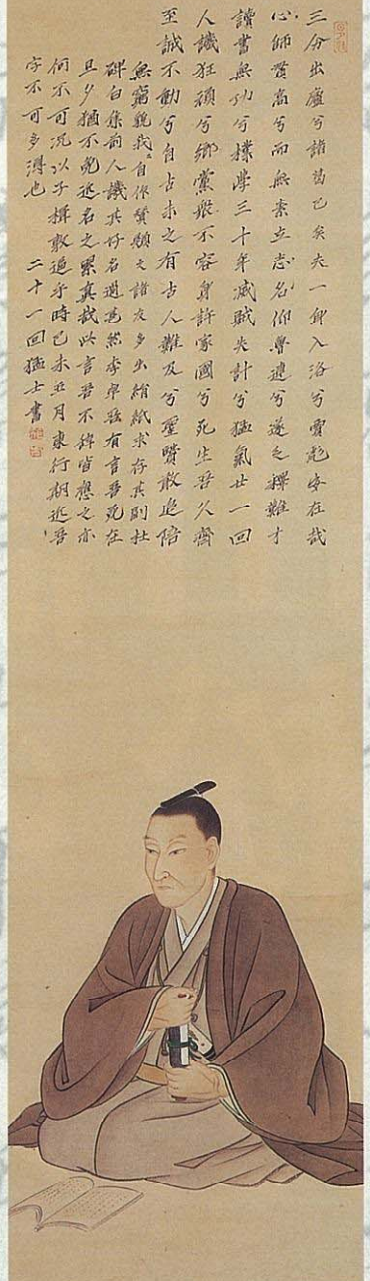 三分出廬兮諸葛已矣夫一身入洛兮賈彪安在哉
心師貫高兮而無素立志名仰魯連兮遂乏釋難才
讀書無功兮樸學三十年滅賊失計兮猛氣廿一回
人譏狂頑兮鄉黨衆不容身許家國兮死生吾久齊
至誠不動兮自古未之有古人難及兮聖賢敢追陪
無窮 我自作贊顏之諸友多出絹紙求存其副杜
碑白 前人譏其好名過 然李卓 有言吾死在
旦夕猶不免 名之累真哉此言吾不 皆應之亦
何不可況以子 敢過乎時已未五月東行期 吾
字不可多得也
二十一回猛士書